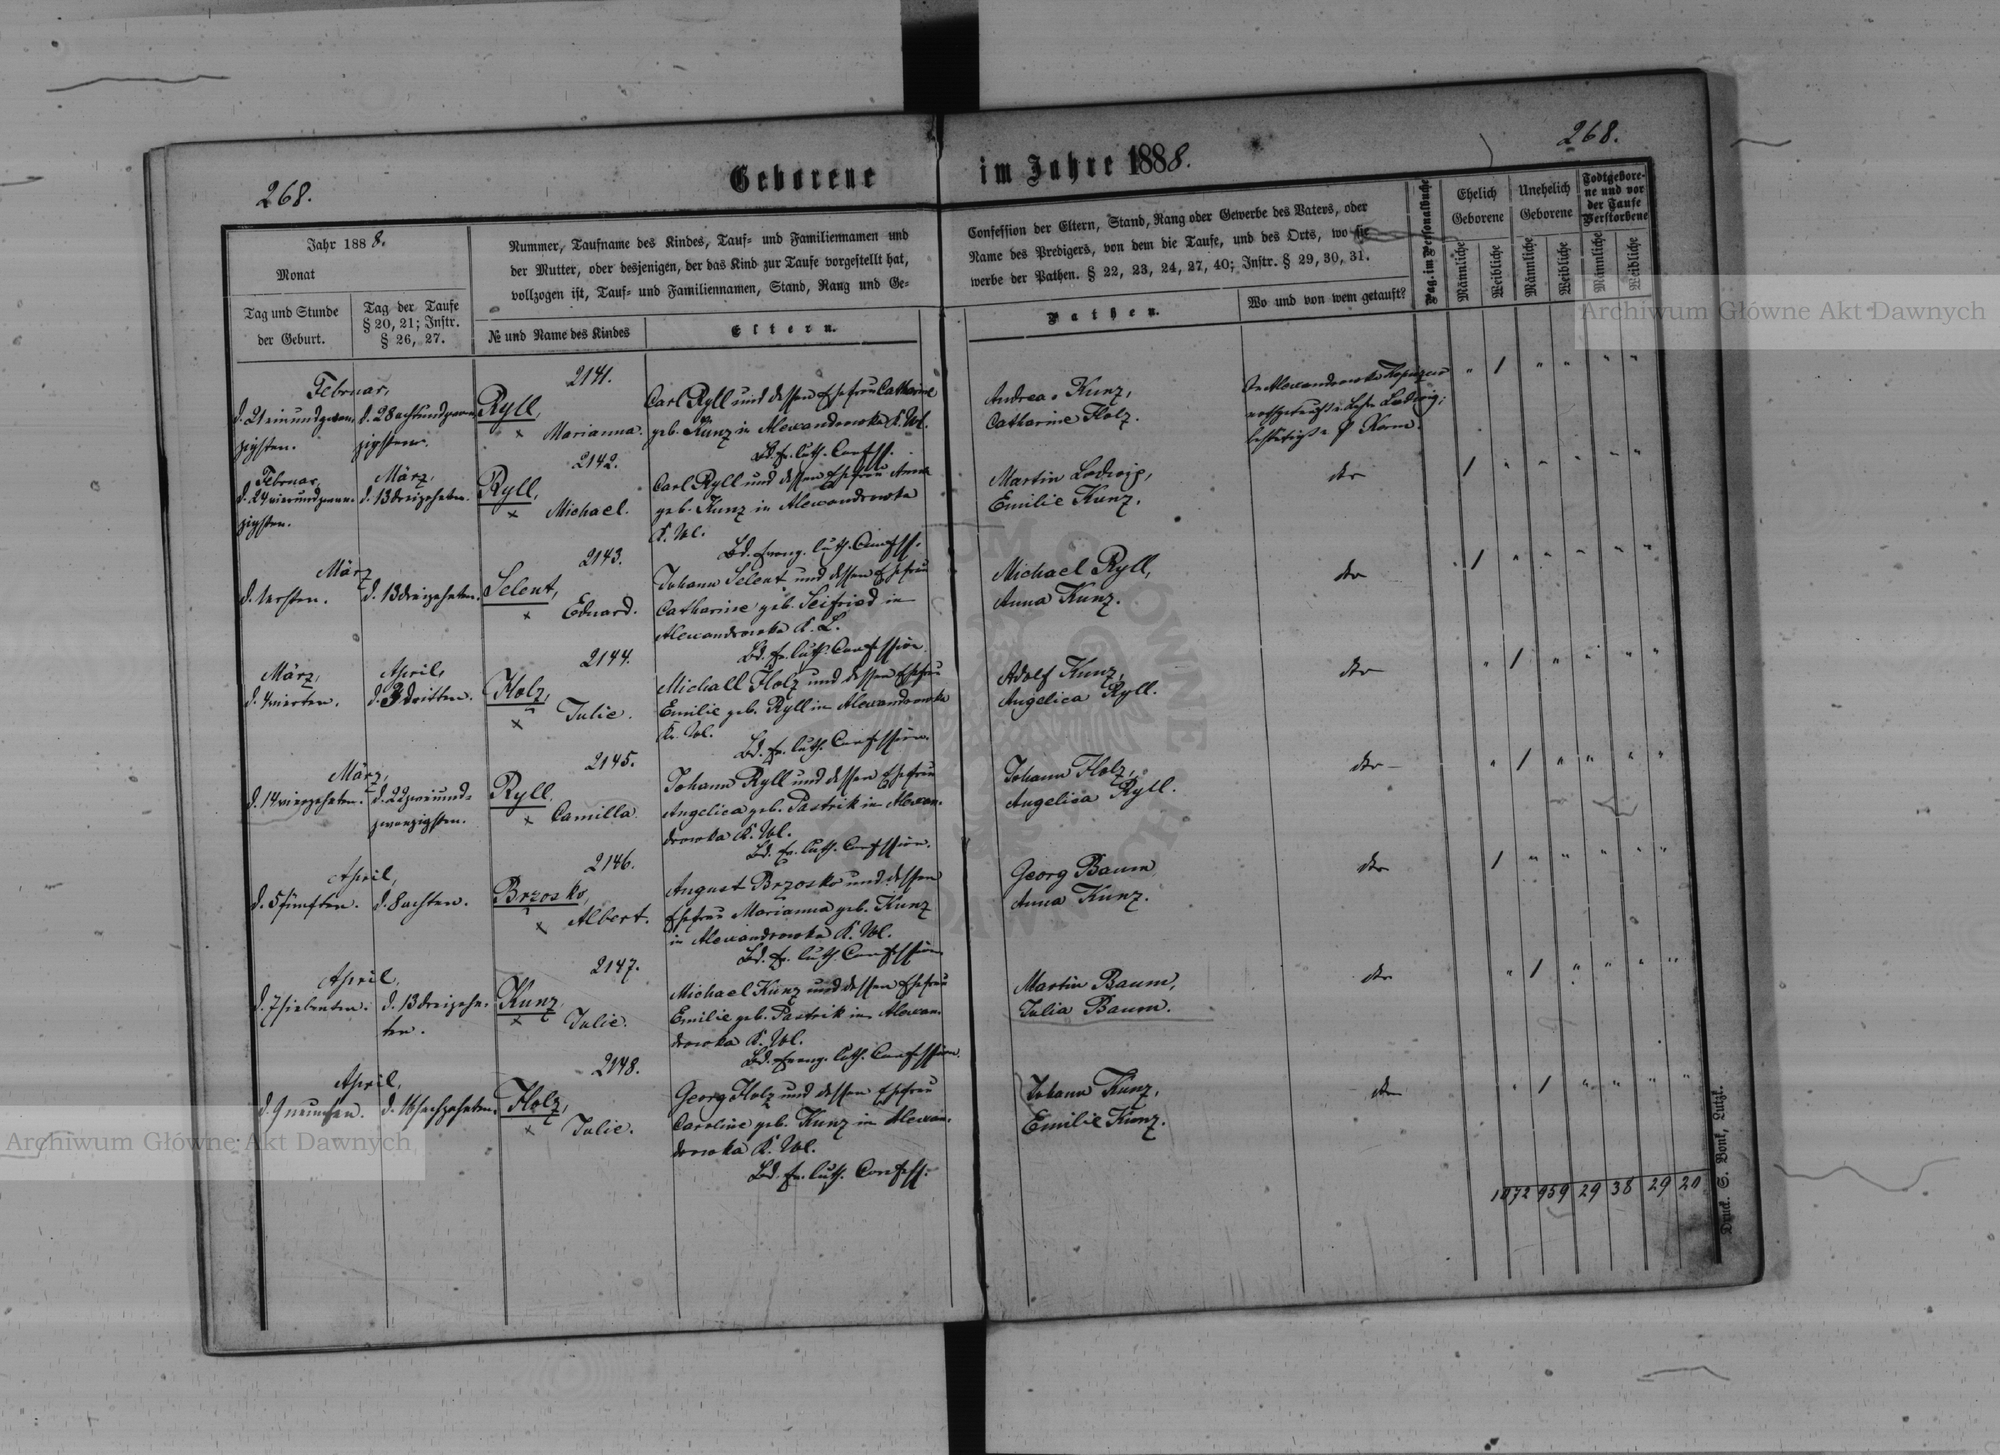 268.
268.
Geborene im Jahre 1888.
Jahr 1888.
Monat
Tag und Stunde
der Geburt.
Tag der Taufe
§ 20, 21; Instr.
§ 26, 27.
Nummer, Taufname des Kindes, Tauf- und Familiennamen und
der Mutter, oder desjenigen, der das Kind zur Taufe vorgestellt hat,
vollzogen ist, Tauf- und Familiennamen, Stand, Rang und Ge-
№ und Name des Kindes
Eltern.
Confession der Eltern, Stand, Rang oder Gewerbe des Vaters, oder
Name des Predigers, von dem die Taufe, und des Orts, wo sie
werbe der Pathen. § 22, 23, 24, 27, 40; Instr. § 29, 30, 31.
Pathen.
Wo und von wem getauft?
Pag. im Personalbuche
Ehelich
Geborene
Unehelich
Geborene
Todtgebore-
ne und vor
der Taufe
Verstorbene
Männliche
Weibliche
Männliche
Weibliche
Männliche
Weibliche
Februar,
d. 21 einundzwan-
zigsten.
d. 28 achtundzwan-
zigsten.
2141.
Ryll,
Marianna.
Carl Ryll und dessen Ehefrau Catharine
geb. Kunz in Alexandrowka K. Wl.
Bd. Ev. luth. Confess.
Andreas Kunz,
Catharine Holz.
" 1 " " " "
Februar,
d. 24 vierundzwan-
zigsten.
März,
d. 13 dreizehnten.
2142.
Ryll,
Michael.
Carl Ryll und dessen Ehefrau Anna
geb. Kunz in Alexandrowka
K. Wl.
Bd. Evang. luth. Confess.
Martin Ludwig,
Emilie Kunz.
dto
1 " " " " "
März
d. 1 ersten.
d. 13 dreizehnten.
2143.
Selent,
Eduard.
Johann Selent und dessen Ehefrau
Catharine geb. Seifried in
Alexandrowka K. L.
Bd. Ev. luth. Confession.
Michael Ryll,
Anna Kunz.
dto
1 " " " " "
März,
d. 4 vierten.
April,
d. 3 dritten.
2144.
Holz,
Julie.
Michall Holz und dessen Ehefrau
Emilie geb. Ryll in Alexandrowka
Kr. Wl.
Bd. Ev. luth. Confession.
Adolf Kunz,
Angelica Ryll.
dto
" 1 " " " "
März,
d. 14 vierzehnten.
d. 22 zweiund-
zwanzigsten.
2145.
Ryll
Camilla.
Johann Ryll und dessen Ehefrau
Angelica geb. Pastrik in Alexan-
drowka K. Wl.
Bd. Ev. luth. Confession.
Johann Holz,
Angelica Ryll.
dto
" 1 " " " "
April,
d. 5 fünften.
d. 8 achten.
2146.
Brzosko,
Albert.
August Brzosko und dessen
Ehefrau Marianna geb. Kunz
in Alexandrowka K. Wl.
Bd. Ev. luth. Confession
Georg Baum
Anna Kunz.
dto
1 " " " " "
April,
d. 7 siebenten.
d. 13 dreizehn-
ten.
2147.
Kunz
Julie.
Michael Kunz und dessen Ehefrau
Emilie geb. Pastrik in Alexan-
drowka K. Wl.
Bd. Evang. luth. Confession.
Martin Baum,
Julia Baum.
dto
" 1 " " " "
April,
d. 9 neunten.
d. 16 sechzehnten.
2148.
Holz,
Julie.
Georg Holz und dessen Ehefrau
Caroline geb. Kunz in Alexan-
drowka K. Wl.
Bd. Ev. luth. Confess.
Johann Kunz,
Emilie Kunz.
dto
" 1 " " " "
1072 959 29 38 29 20
Druck. S. Bonk, Lutzk.
Archiwum Główne Akt Dawnych
Archiwum Główne Akt Dawnych